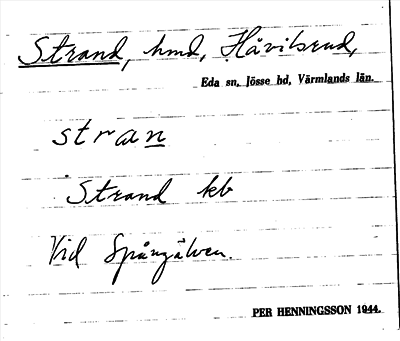 Strand, hmd, Håvilsrud,
Eda sn, Jösse hd, Värmlands län.
stran
Strand kb
Vid Spångälven.
PER HENNINGSSON 1944.